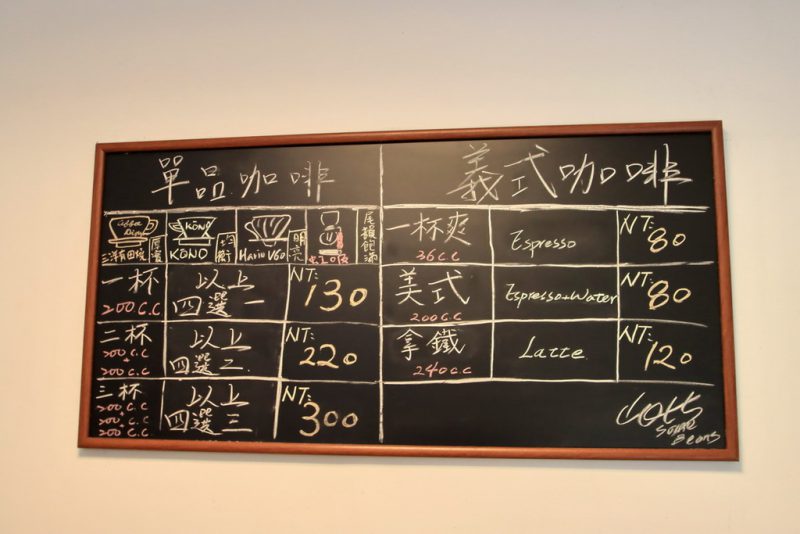 單品咖啡
三洋有田燒
厚實
KŌNO
KŌNO
均衡
Hario V60
明亮
尾韻飽滿
一杯
200 C.C
以上
四選一
NT:
130
二杯
200 C.C
+
200 C.C
以上
四選二
NT:
220
三杯
200 C.C
+
200 C.C
+
200 C.C
以上
四選三
NT:
300
義式咖啡
一杯爽
36 C.C
Espresso
NT:
80
美式
200 C.C
Espresso+Water
NT:
80
拿鐵
240 C.C
Latte
NT:
120
Some
Beans